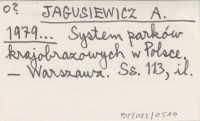 O?
JAGUSIEWICZ A.
1979... System parków
krajobrazowych w Polsce.
— Warszawa. Ss. 113, il.